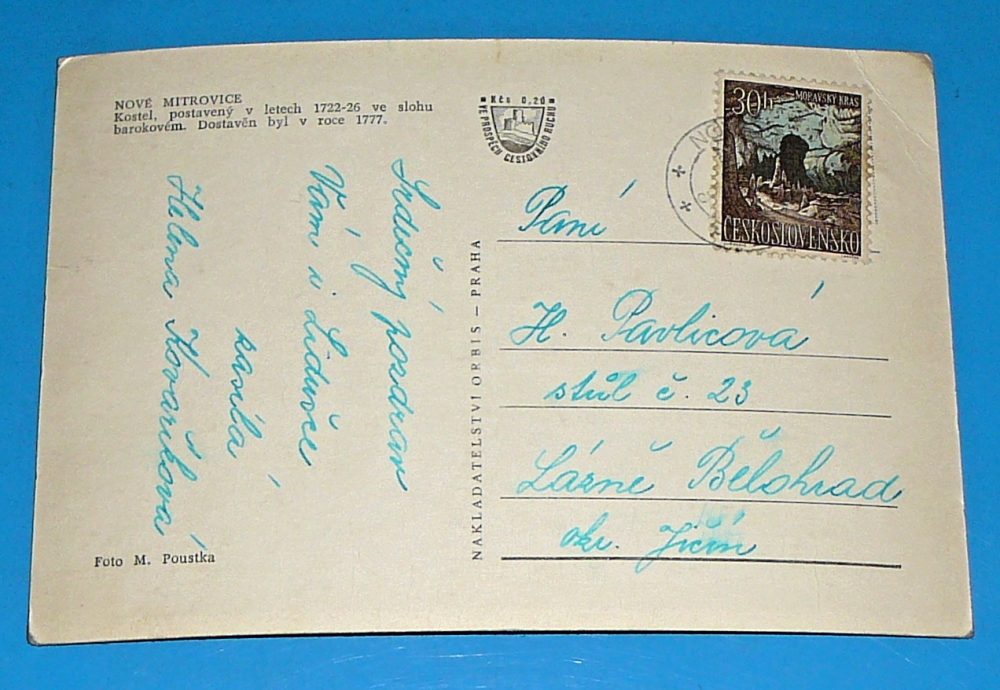 NOVÉ MITROVICE
Kostel, postavený v letech 1722-26 ve slohu
barokovém. Dostavěn byl v roce 1777.
Srdečný pozdrav
Vám i Liduščce
zasílá
Helena Kovaříková
Foto M. Poustka
NAKLADATELSTVÍ ORBIS — PRAHA
Kčs 0,20
VE PROSPĚCH CESTOVNÍHO RUCHU
30h MORAVSKÝ KRAS
ČESKOSLOVENSKO
Paní
H. Pavlicová
stůl č. 23
Lázně Bělohrad
okr. Jičín